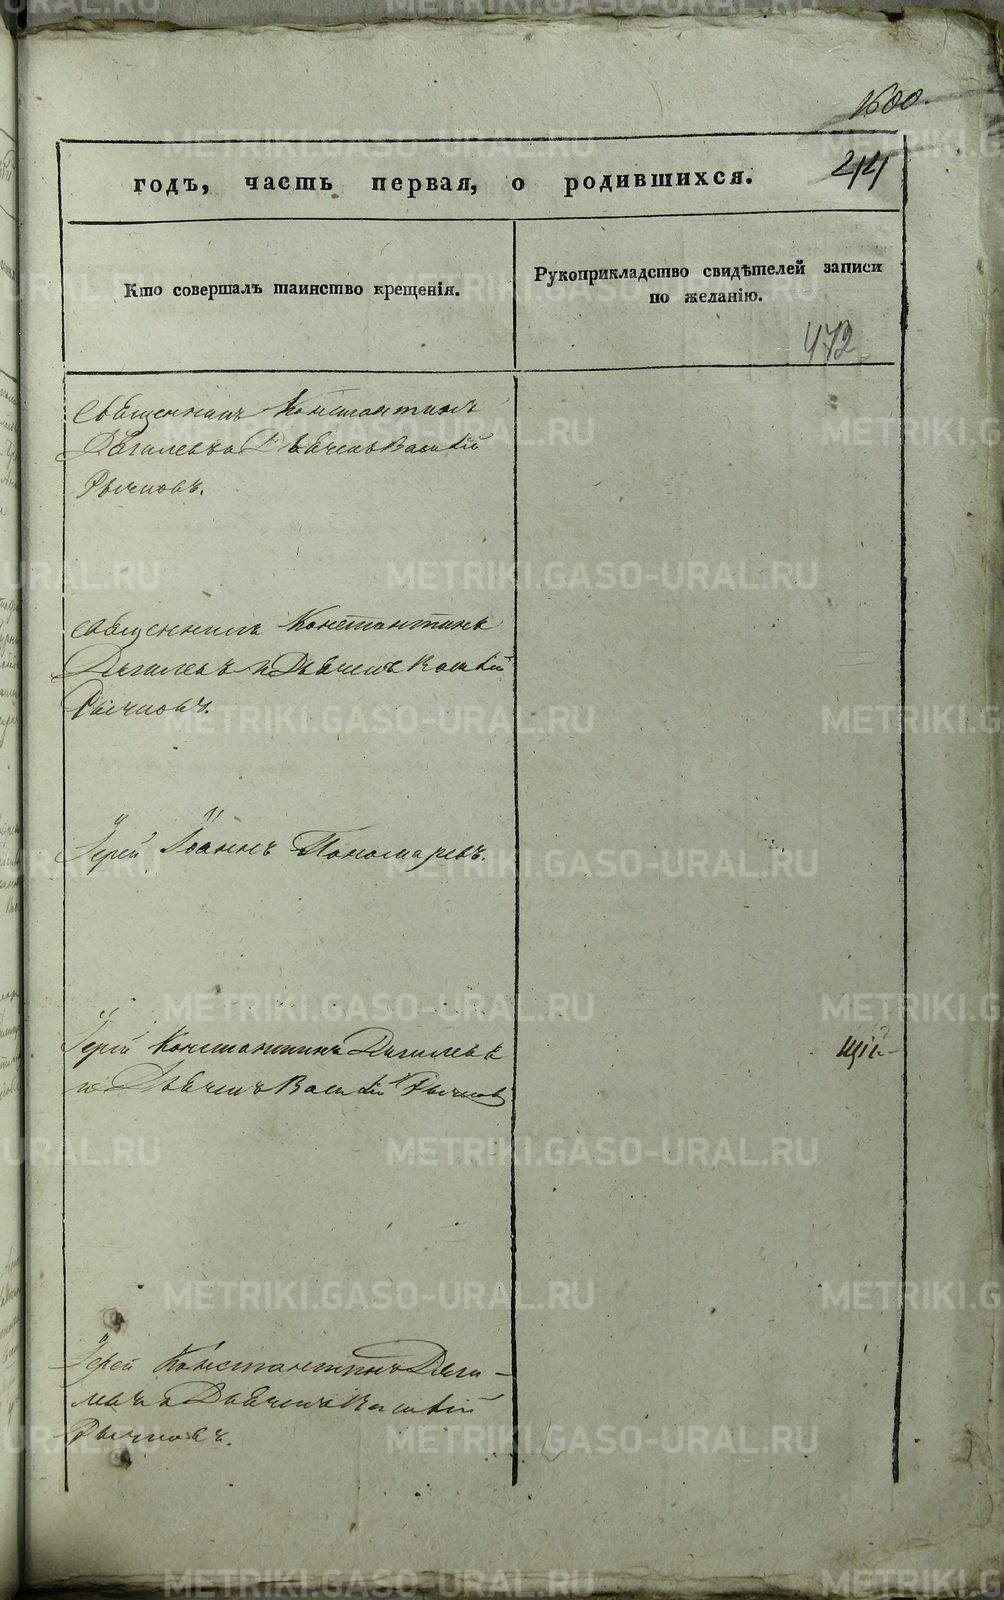 1600.
244
годъ, часть первая, о родившихся.
Кто совершалъ таинство крещенія.
Рукоприкладство свидѣтелей записи
по желанію.
472
Священникъ Константинъ
Дягилевъ и Дьячекъ Василій
Рычковъ.
Священникъ Константинъ
Дягилевъ и Дьячекъ Василій
Рычковъ.
Іерей Іоаннъ Пономаревъ.
Іерей Константинъ Дягилевъ
и Дьячекъ Василій Рычковъ
Іерей Константинъ Дяги-
левъ и Дьячекъ Василій
Рычковъ.
METRIKI.GASO-URAL.RU